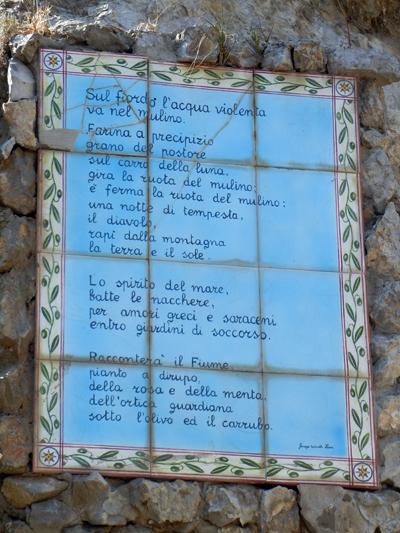 Sul fiordo l'acqua violenta
va nel mulino.
Farina a precipizio
grano del pastore
sul carro della luna,
gira la ruota del mulino;
è ferma la ruota del mulino:
una notte di tempesta,
il diavolo,
rapì dalla montagna
la terra e il sole.
Lo spirito del mare,
batte le nacchere,
per amori greci e saraceni
entro giardini di soccorso.
Racconterà il Fiume,
pianto a dirupo,
della rosa e della menta,
dell'ortica guardiana
sotto l'olivo ed il carrubo.